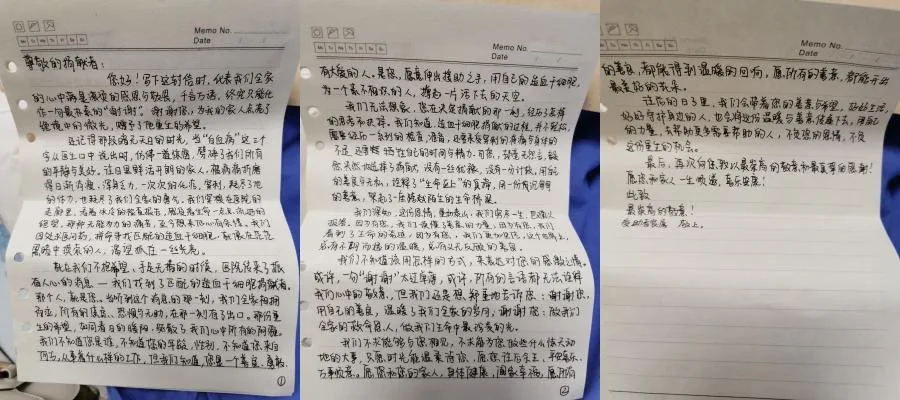 Memo No.
Date
Mo Tu We Th Fr Sa Su
尊敬的捐献者:
您好!写下这封信时,代表我们全家
的心中满是滚烫的感恩与敬畏,千言万语,终究只能化
作一句最朴素的“谢谢”。谢谢您,为我的家人点亮了
绝境中的微光,赠予了他重生的希望。
还记得那段暗无天日的时光,当“白血病”这三个
字从医生口中说出时,仿佛一道惊雷,劈碎了我们所有
的平静与美好。往日里鲜活开朗的家人,被病痛折磨
得日渐消瘦、浑身乏力,一次次的化疗、穿刺,耗尽了他
的体力,也耗尽了我们全家的勇气。我们穿梭在医院的
走廊里,看着冰冷的检查报告,
绝望,那种无能为力的痛苦,至今想来仍心有余悸。我们
四处求医问药,拼命寻找匹配的造血干细胞,就像在茫茫
黑暗中摸索的人,渴望抓住一丝光亮。
就在我们不抱希望、走投无路的时候,医院传来了振
奋人心的消息——我们找到了匹配的造血干细胞捐献者。
那个人,就是您。当听到这个消息的那一刻,我们全家相拥
而泣,所有的焦虑、恐惧与无助,在那一刻有了出口。那份重
生的希望,如同春日的暖阳,驱散了我们心中所有的阴霾。
我们不知道您是谁,不知道您的年龄、性别,不知道您来自
何方,从事着什么样的工作,但我们知道,您是一个善良、勇敢、
①
Memo No.
Date
Mo Tu We Th Fr Sa Su
有大爱的人。是您,愿意伸出援助之手,用自己的造血干细胞,
为一个素不相识的人,撑起一片活下去的天空。
我们无法想象,您在决定捐献的那一刻,经历了怎样
的思考和抉择。我们知道,造血干细胞捐献的过程,并不轻松,
需要经历一系列的检查、准备,还要承受穿刺的疼痛与身体的
不适,还要牺牲自己的时间与精力。可您,却毫无怨言,毅
然决然地选择了捐献,没有一丝犹豫,没有一分计较,用自己
的善良与无私,诠释了“生命至上”的真谛,用一份沉甸甸
的善意,架起了一座跨越陌生的生命桥梁。
我们深知,这份恩情,重如泰山,我们穷尽一生,也难以
报答。因为有您,我们读懂了善良的力量,因为有您,我们
看到了生命的奇迹,因为有您,我们更加坚信,这个世界上,
总有不期而遇的温暖,总有义无反顾的善良。
我们不知道该用怎样的方式,来表达对您的感激之情。
或许,一句“谢谢”太过单薄,或许,所有的言语都无法诠释
我们心中的敬意。但我们还是想,郑重地告诉您:谢谢您,
用自己的善良,温暖了我们全家的岁月,谢谢您:做我们
全家的救命恩人,做我们生命中最珍贵的光。
我们不求能够与您相见,不求能为您做些什么惊天动
地的大事,只愿时光能温柔待您,愿您往后余生,平安喜乐、
万事顺意。愿您和您的家人,身体健康,阖家幸福,愿所有
②
的善良,都能得到温暖的回响,愿所有的善意,都能开出
最美好的花朵。
往后的日子里,我们会带着您的善意与希望,好好生活,
好好守护身边的人,也会将这份温暖与善意传递下去,用自己
的力量,去帮助更多需要帮助的人,不负您的恩情,不负
这份重生的机会。
最后,再次向您致以最崇高的敬意和最真挚的感谢!
愿您和家人一生顺遂,喜乐安康!
此致
最崇高的敬意!
敬上。